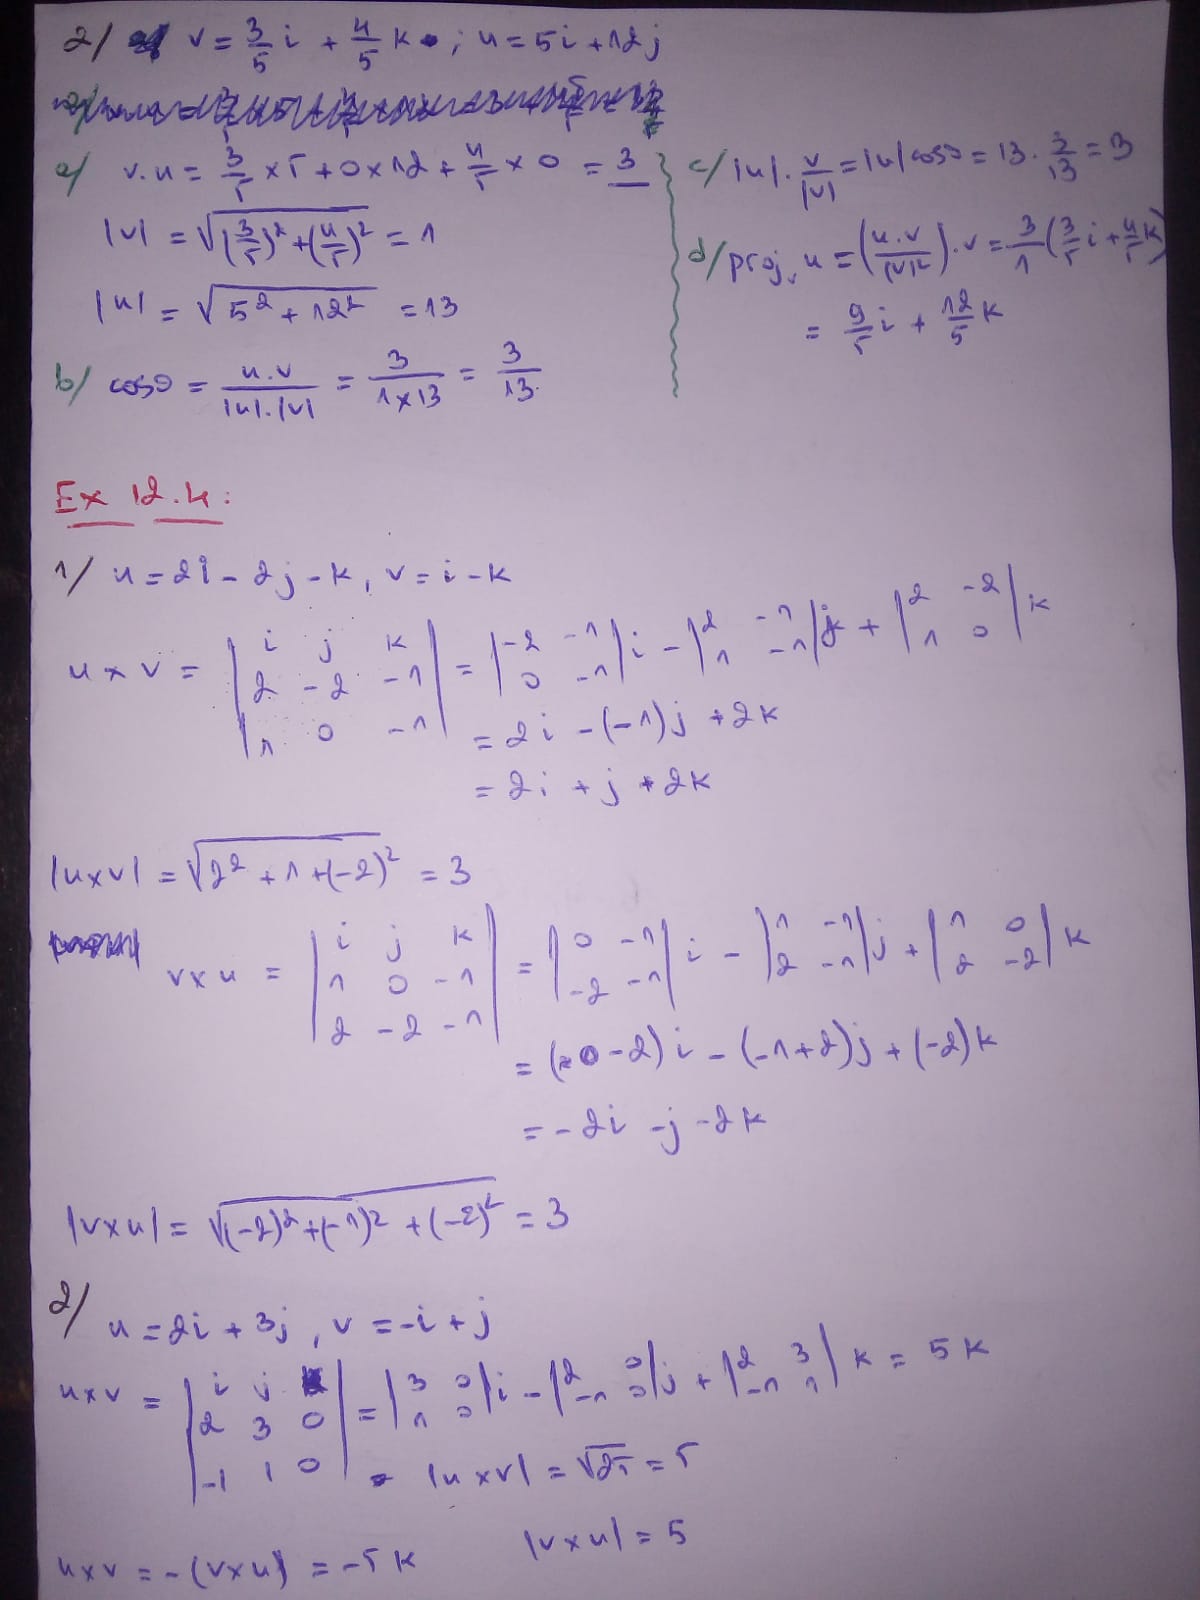 2/ v = 3/5 i + 4/5 k ; u = 5i + 12j
a/ v.u = 3/5 x 5 + 0 x 12 + 4/5 x 0 = 3
|v| = √((3/5)² + (4/5)²) = 1
|u| = √(5² + 12²) = 13
b/ cosθ = u.v / |u|.|v| = 3 / 1x13 = 3/13
c/ |u|. v/|v| = |u| cosθ = 13 . 3/13 = 3
d/ proj_v u = (u.v / |v|²) . v = 3/1 (3/5 i + 4/5 k)
= 9/5 i + 12/5 k
Ex 12.4:
1/ u = 2i - 2j - k, v = i - k
u x v = | i j k ; 2 -2 -1 ; 1 0 -1 | = | -2 -1 ; 0 -1 | i - | 2 -1 ; 1 -1 | j + | 2 -2 ; 1 0 | k
= 2i - (-1)j + 2k
= 2i + j + 2k
|u x v| = √(2² + 1 + (-2)²) = 3
v x u = | i j k ; 1 0 -1 ; 2 -2 -1 | = | 0 -1 ; -2 -1 | i - | 1 -1 ; 2 -1 | j + | 1 0 ; 2 -2 | k
= (0 - 2)i - (-1 + 2)j + (-2)k
= -2i - j - 2k
|v x u| = √((-2)² + (-1)² + (-2)²) = 3
2/ u = 2i + 3j, v = -i + j
u x v = | i j k ; 2 3 0 ; -1 1 0 | = | 3 0 ; 1 0 | i - | 2 0 ; -1 0 | j + | 2 3 ; -1 1 | k = 5k
|u x v| = √25 = 5
u x v = -(v x u) = -5k
|v x u| = 5